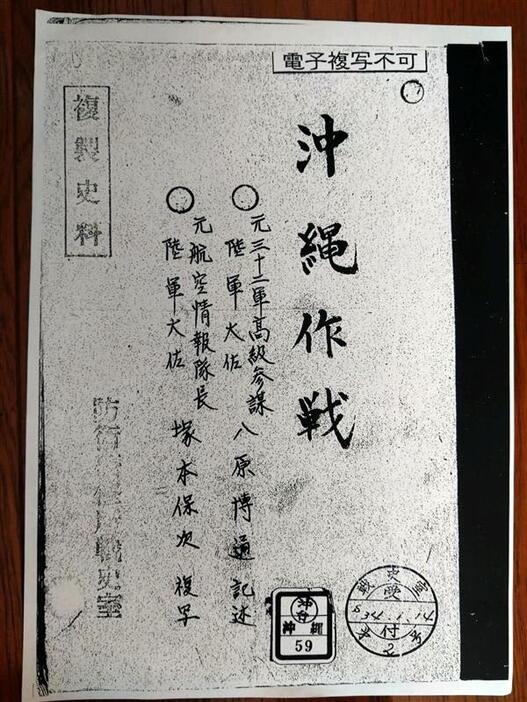 電子複写不可
沖縄作戦
元三十二軍高級参謀
陸軍大佐 八原博通 記述
元航空情報隊長
陸軍大佐 塚本保次 複写
複製史料
戦史室
史
受
S34.1.14
付
2
沖台
沖縄
59